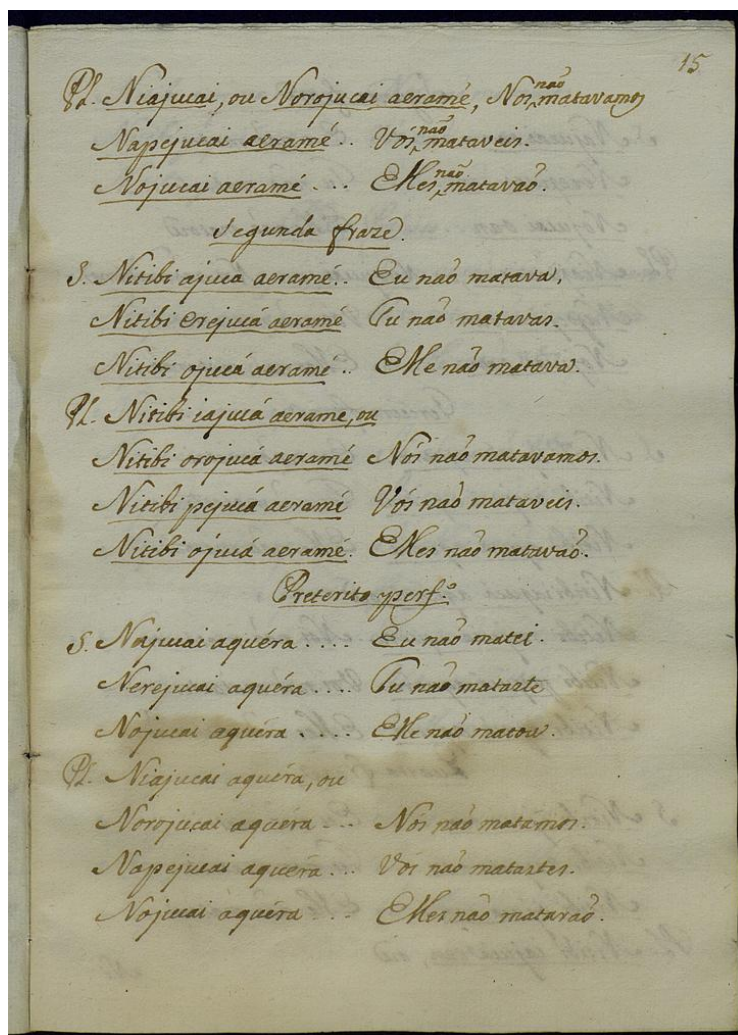 15
Pl. Niajucai, ou Norojucai aeramé, Nós não matavamos
Napejucai aeramé.. Vós não mataveis.
Nojucai aeramé.... Elles não matavaõ.
segunda fraze.
S. Nitibi ajucá aeramé.. Eu naõ matava,
Nitibi erejucá aeramé Tu naõ matavas.
Nitibi ojucá aeramé.. Elle naõ matava.
Pl. Nitibi iajucá aerame, ou
Nitibi orojucá aeramé Nós naõ matavamos.
Nitibi pejucá aeramé Vós naõ mataveis.
Nitibi ojucá aeramé. Elles naõ matavaõ.
Preterito perf.º
S. Najucai aquéra.... Eu naõ matei.
Nerejucai aquéra.... Tu naõ mataste
Nojucai aquéra..... Elle naõ matou.
Pl. Niajucai aquéra, ou
Norojucai aquéra.... Nós naõ matamos.
Napejucai aquéra... Vós naõ matastes.
Nojucai aquéra.... Elles naõ mataraõ.